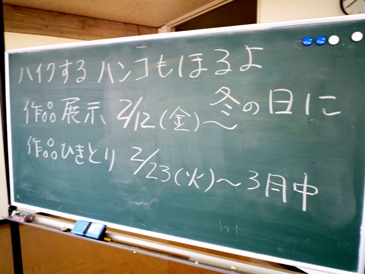 ハイクする ハンコもほるよ
作品展示 2/12(金)～ 冬の日に
作品ひきとり 2/23(火)～3月中